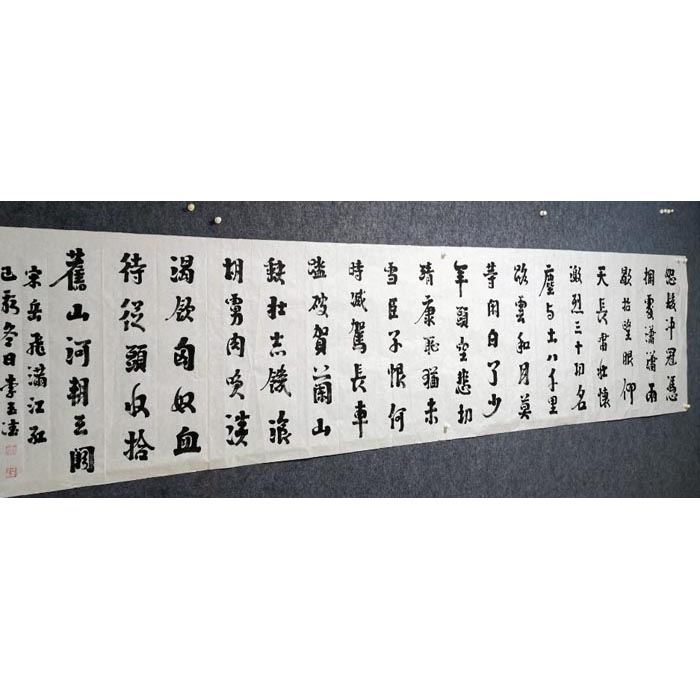 怒髮沖冠憑
欄處瀟瀟雨
歇抬望眼仰
天長嘯壯懷
激烈三十功名
塵与土八千里
路雲和月莫
等閑白了少
年頭空悲切
靖康恥猶未
雪臣子恨何
時滅駕長車
踏破賀蘭山
缺壯志饑飡
胡虜肉笑談
渴飲匈奴血
待從頭收拾
舊山河朝天闕
宋岳飛滿江紅
己亥冬日李玉